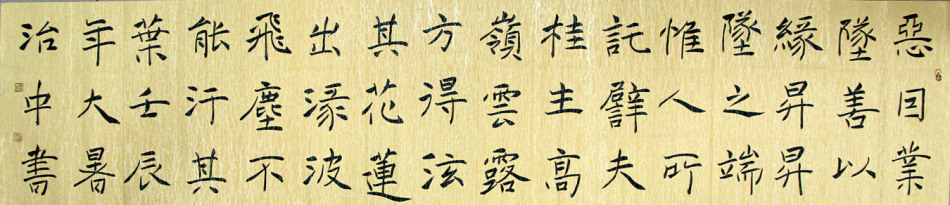 惡因業
墜善以
緣昇昇
墜之端
惟人所
託譬夫
桂生高
嶺雲露
方得泫
其花蓮
出淥波
飛塵不
能汙其
葉壬辰
年大暑
治中書